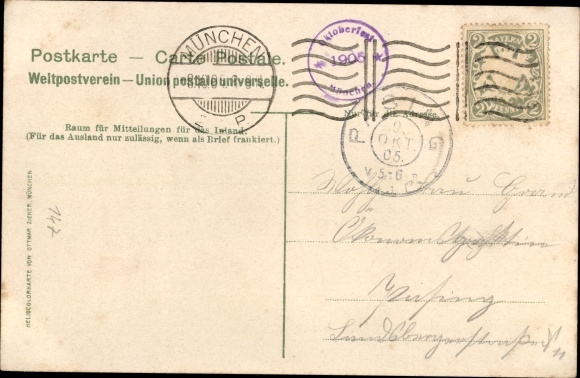 Postkarte — Carte Postale.
Weltpostverein — Union postale universelle.
MÜNCHEN
Oktoberfest
1905
München
BAYERN
2 2
2 2
Nur für die Adresse.
Raum für Mitteilungen für das Inland.
(Für das Ausland nur zulässig, wenn als Brief frankiert.)
PASING
9.
OKT.
05.
5-6
147
HELIOCOLORKARTE VON OTTMAR ZIEHER, MÜNCHEN
Pasing
Landsbergerstraße